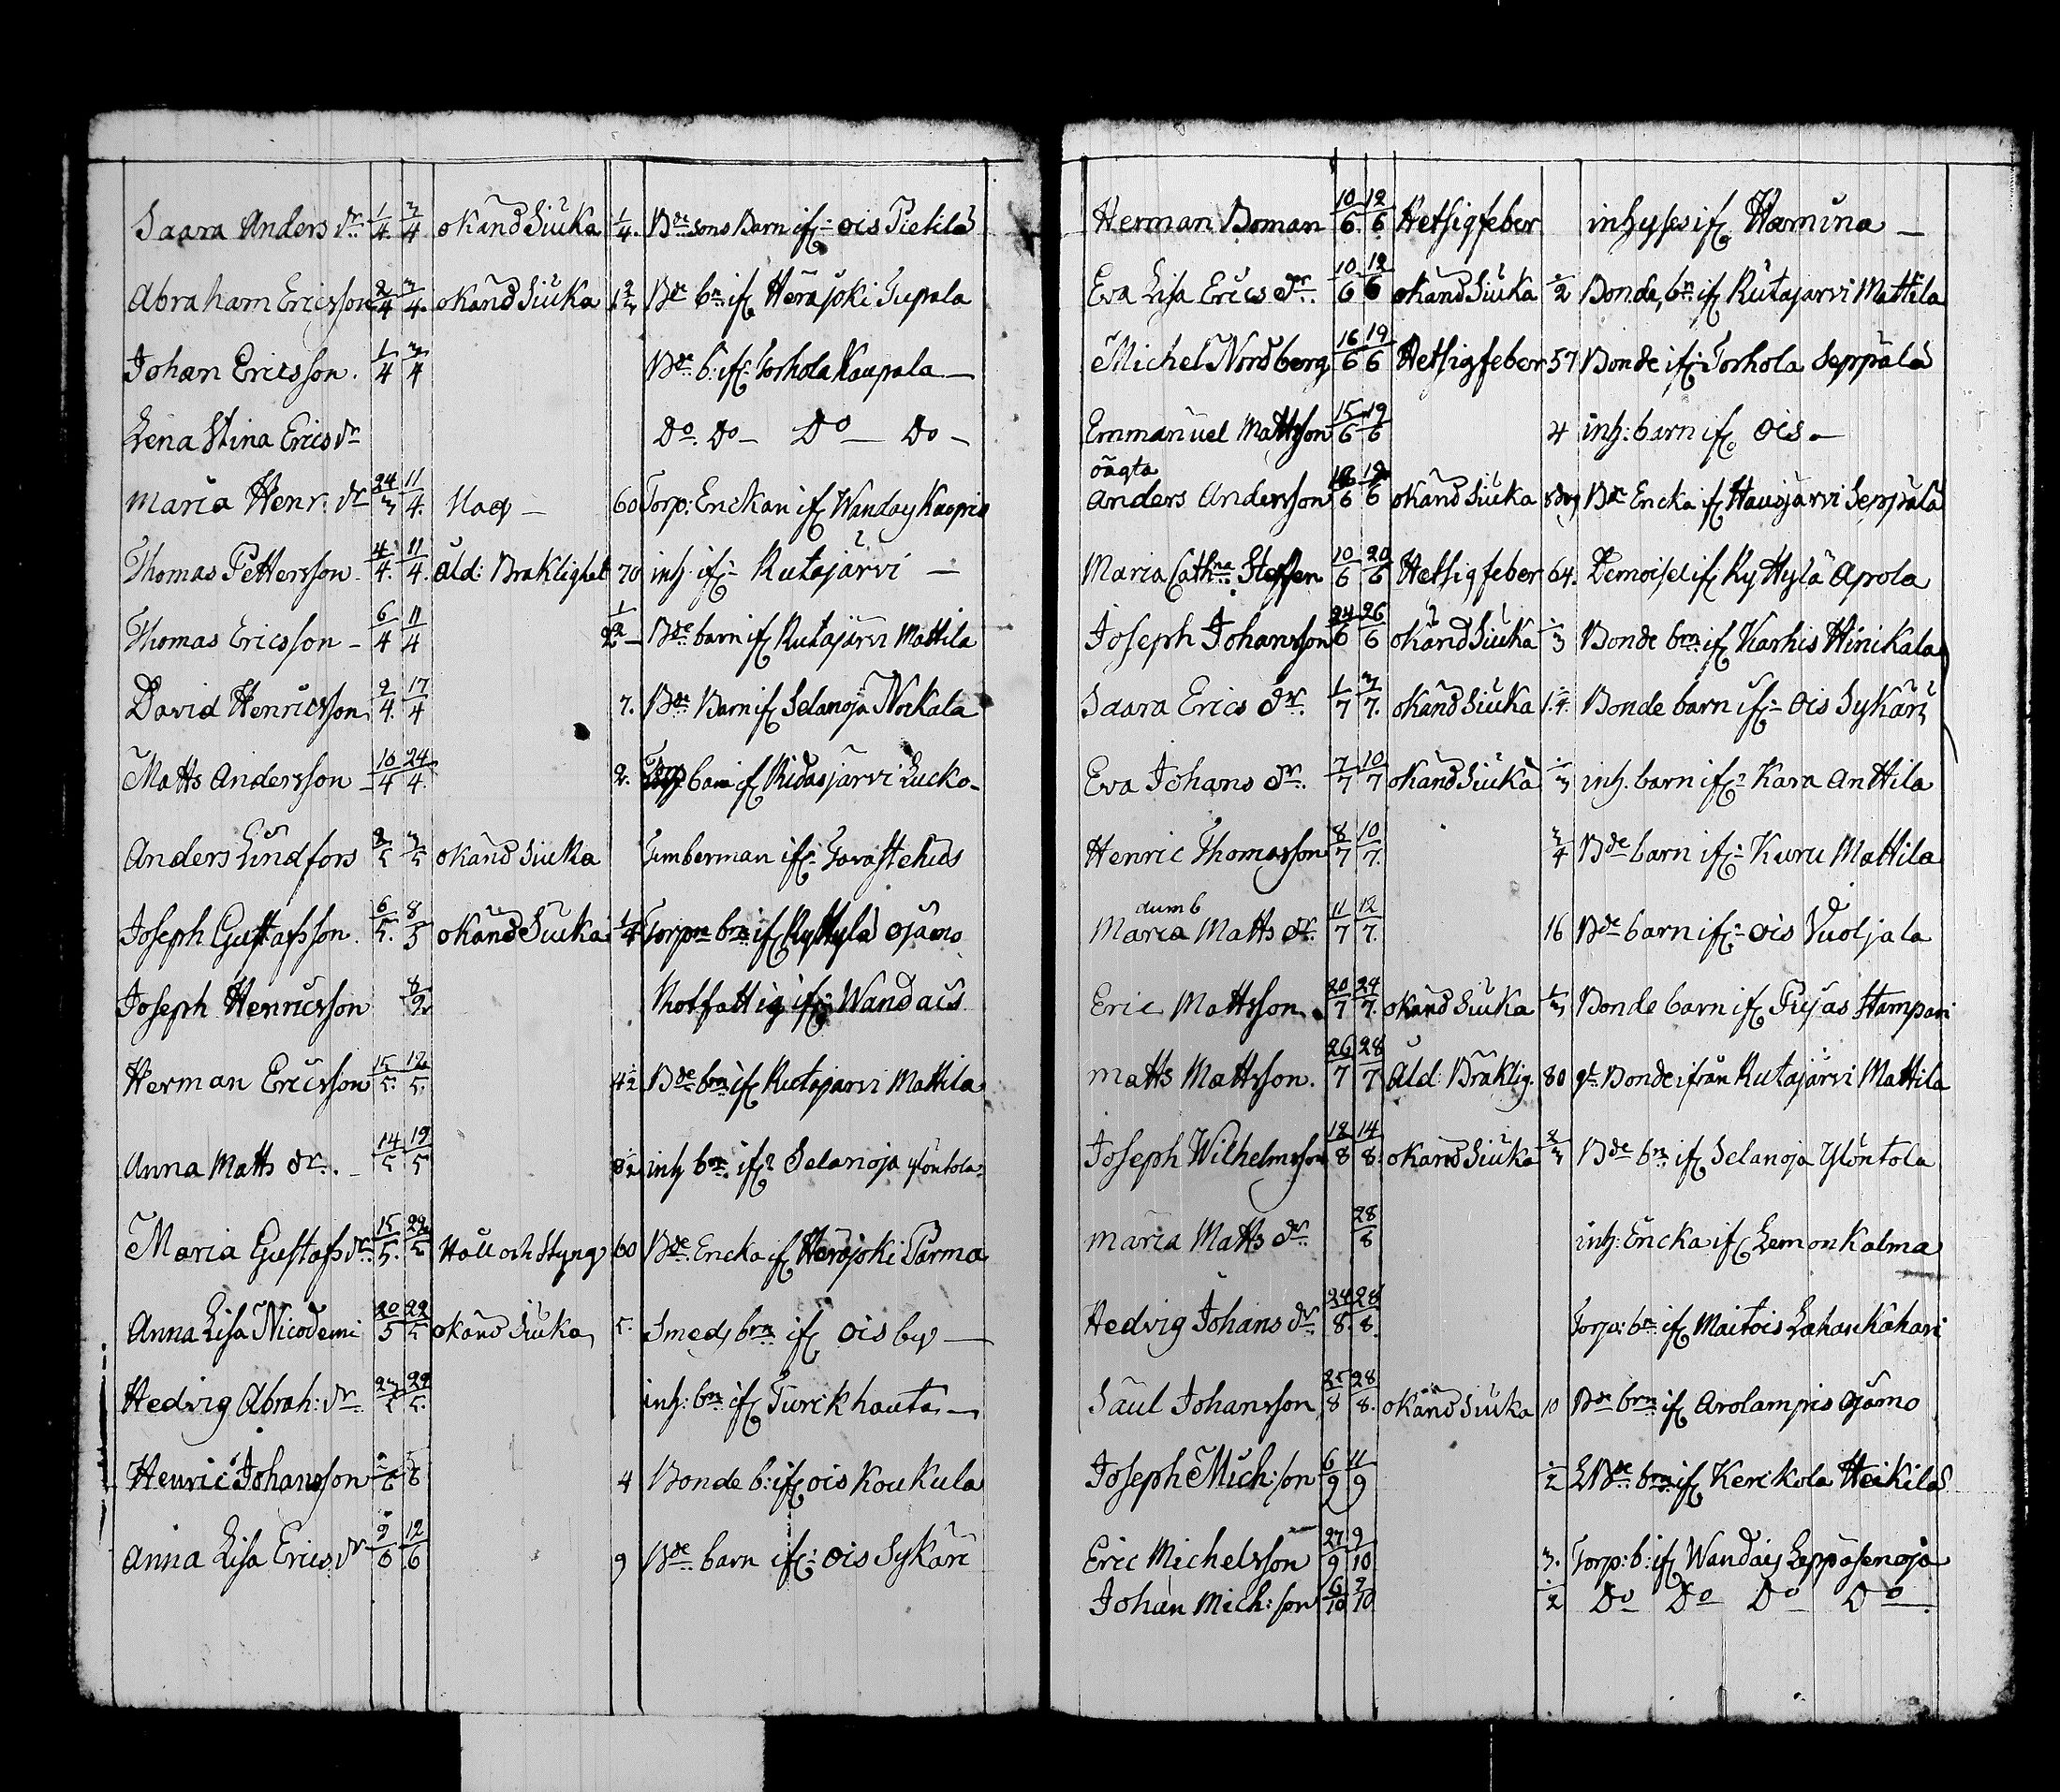 Saara Anders dr 1/4 3/4 okänd Siuka 1/4 Bde sons Barn if: ois Pietilä
Abraham Ericsson 2/4 3/4 okänd Siuka Bde bn if Herajoki Tupala
Johan Ericsson. 1/4 3/4 Bde b: if: Torhola Kaupala
Lena Stina Erics dr Do Do Do Do
Maria Henr: dr 24/3 11/4 60 Torp: Enckan if Wanday Kaapris
Thomas Pettersson 4/4 11/4 Åld: Bräklighet 70 inh if: Rutajärvi
Thomas Ericsson 6/4 11/4 Bde barn if Rutajärvi Mattila
David Henricsson 9/4 17/4 7. Bde Barn if Selänoja Norkala
Matts Andersson 16/4 24/4 2. barn if Ridasjärvi Lucko
Anders Lindfors 2/5 3/5 okänd Siuka Timberman if: Tavastehus
Joseph Gustafsson. 6/5 8/5 okänd Siuka 1/4 Torpa brn if Ryttylä Ojamo
Joseph Henricsson Rotfattig if: Wandais
Herman Ericsson 15/5 19/5 4 1/2 Bde brn if Rutajarvi Mattila
Anna Matts dr. 14/5 19/5 inh brn if: Selanoja ylöntola
Maria Gustafs dr 15/5 29/5 Håll och Styng 60 Bde Encka if Herajoki Parma
Anna Lisa Nicodemi 20/5 22/5 okänd Siuka 5. Smed, brn if ois by
Hedvig Abrah: dr 27/5 29/5 inh: brn if Turckhauta
Henric Johansson 2/6 5/6 4 Bonde b: if ois Koukula
Anna Lisa Erics dr 9/6 12/6 9 Bde barn if: ois Sykäri
Herman Boman 10/6 12/6 Hetsigfeber inhyses if Hamina
Eva Lisa Erics dr. 10/6 12/6 okänd Siuka 1/2 Bonde, bn if Rutajarvi Mattila
Michel Nordberg 16/6 19/6 Hetsigfeber 57 Bonde if: Torhola Seppälä
Emmanuel Mattsson 15/6 19/6 4 inh: barn if ois
oägta
Anders Andersson 18/6 19/6 okänd Siuka 8 dag Bde Encka if Hausjärvi Seppälä
Maria Cathna Steffen 10/6 20/6 Hetsigfeber 64. Demoisel if Ryttylä Apola
Joseph Johansson 24/6 26/6 okänd Siuka 1/3 Bonde brn if Karhis Hinikala
Saara Erics dr. 1/7 3/7 okänd Siuka Bonde barn if: Ois Sykäri
Eva Johans dr. 7/7 10/7 okänd Siuka 1/3 inh. barn if: Kara Anttila
Henric Thomasson 8/7 10/7 3/4 Bde barn if: Kuru Mattila
dumb
Maria Matts dr. 11/7 12/7 16 Bde barn if: ois Vuoljala
Eric Mattsson 20/7 24/7 okänd Siuka 1/3 Bonde barn if Pujas Stampari
Matts Mattsson. 26/7 28/7 Åld: Bräklig. 80 gl: Bonde ifrån Rutajärvi Mattila
Joseph Wilhelmsson 12/8 14/8 okänd Siuka 2/3 Bde brn if Selanoja Ylöntola
Maria Matts dr 28/8 inh: Encka if Lemon Kalma
Hedvig Johans dr 24/8 28/8 Torp: bn if Maitois Lahan Kahari
Saul Johansson 25/8 28/8 okänd Siuka 10 Bde brn if Arolampis Ojamo
Joseph Mich: son 6/9 11/9 1/2 brn if Kerikola Heikilä
Eric Michelsson 27/9 9/10 3. Torp: b: if Wanday Leppäsenoja
Johan Mich: son 6/10 9/10 1/2 Do Do Do Do